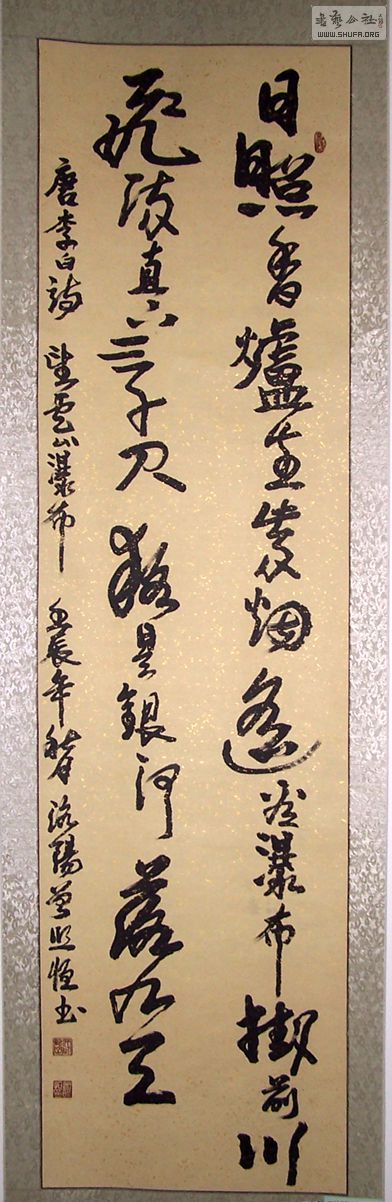 書藝公社
WWW.SHUFA.ORG
日照香爐生紫烟遥看瀑布掛前川
飛流直下三千尺疑是銀河落九天
唐李白詩 望庐山瀑布 壬辰年秋月洛陽照恒书